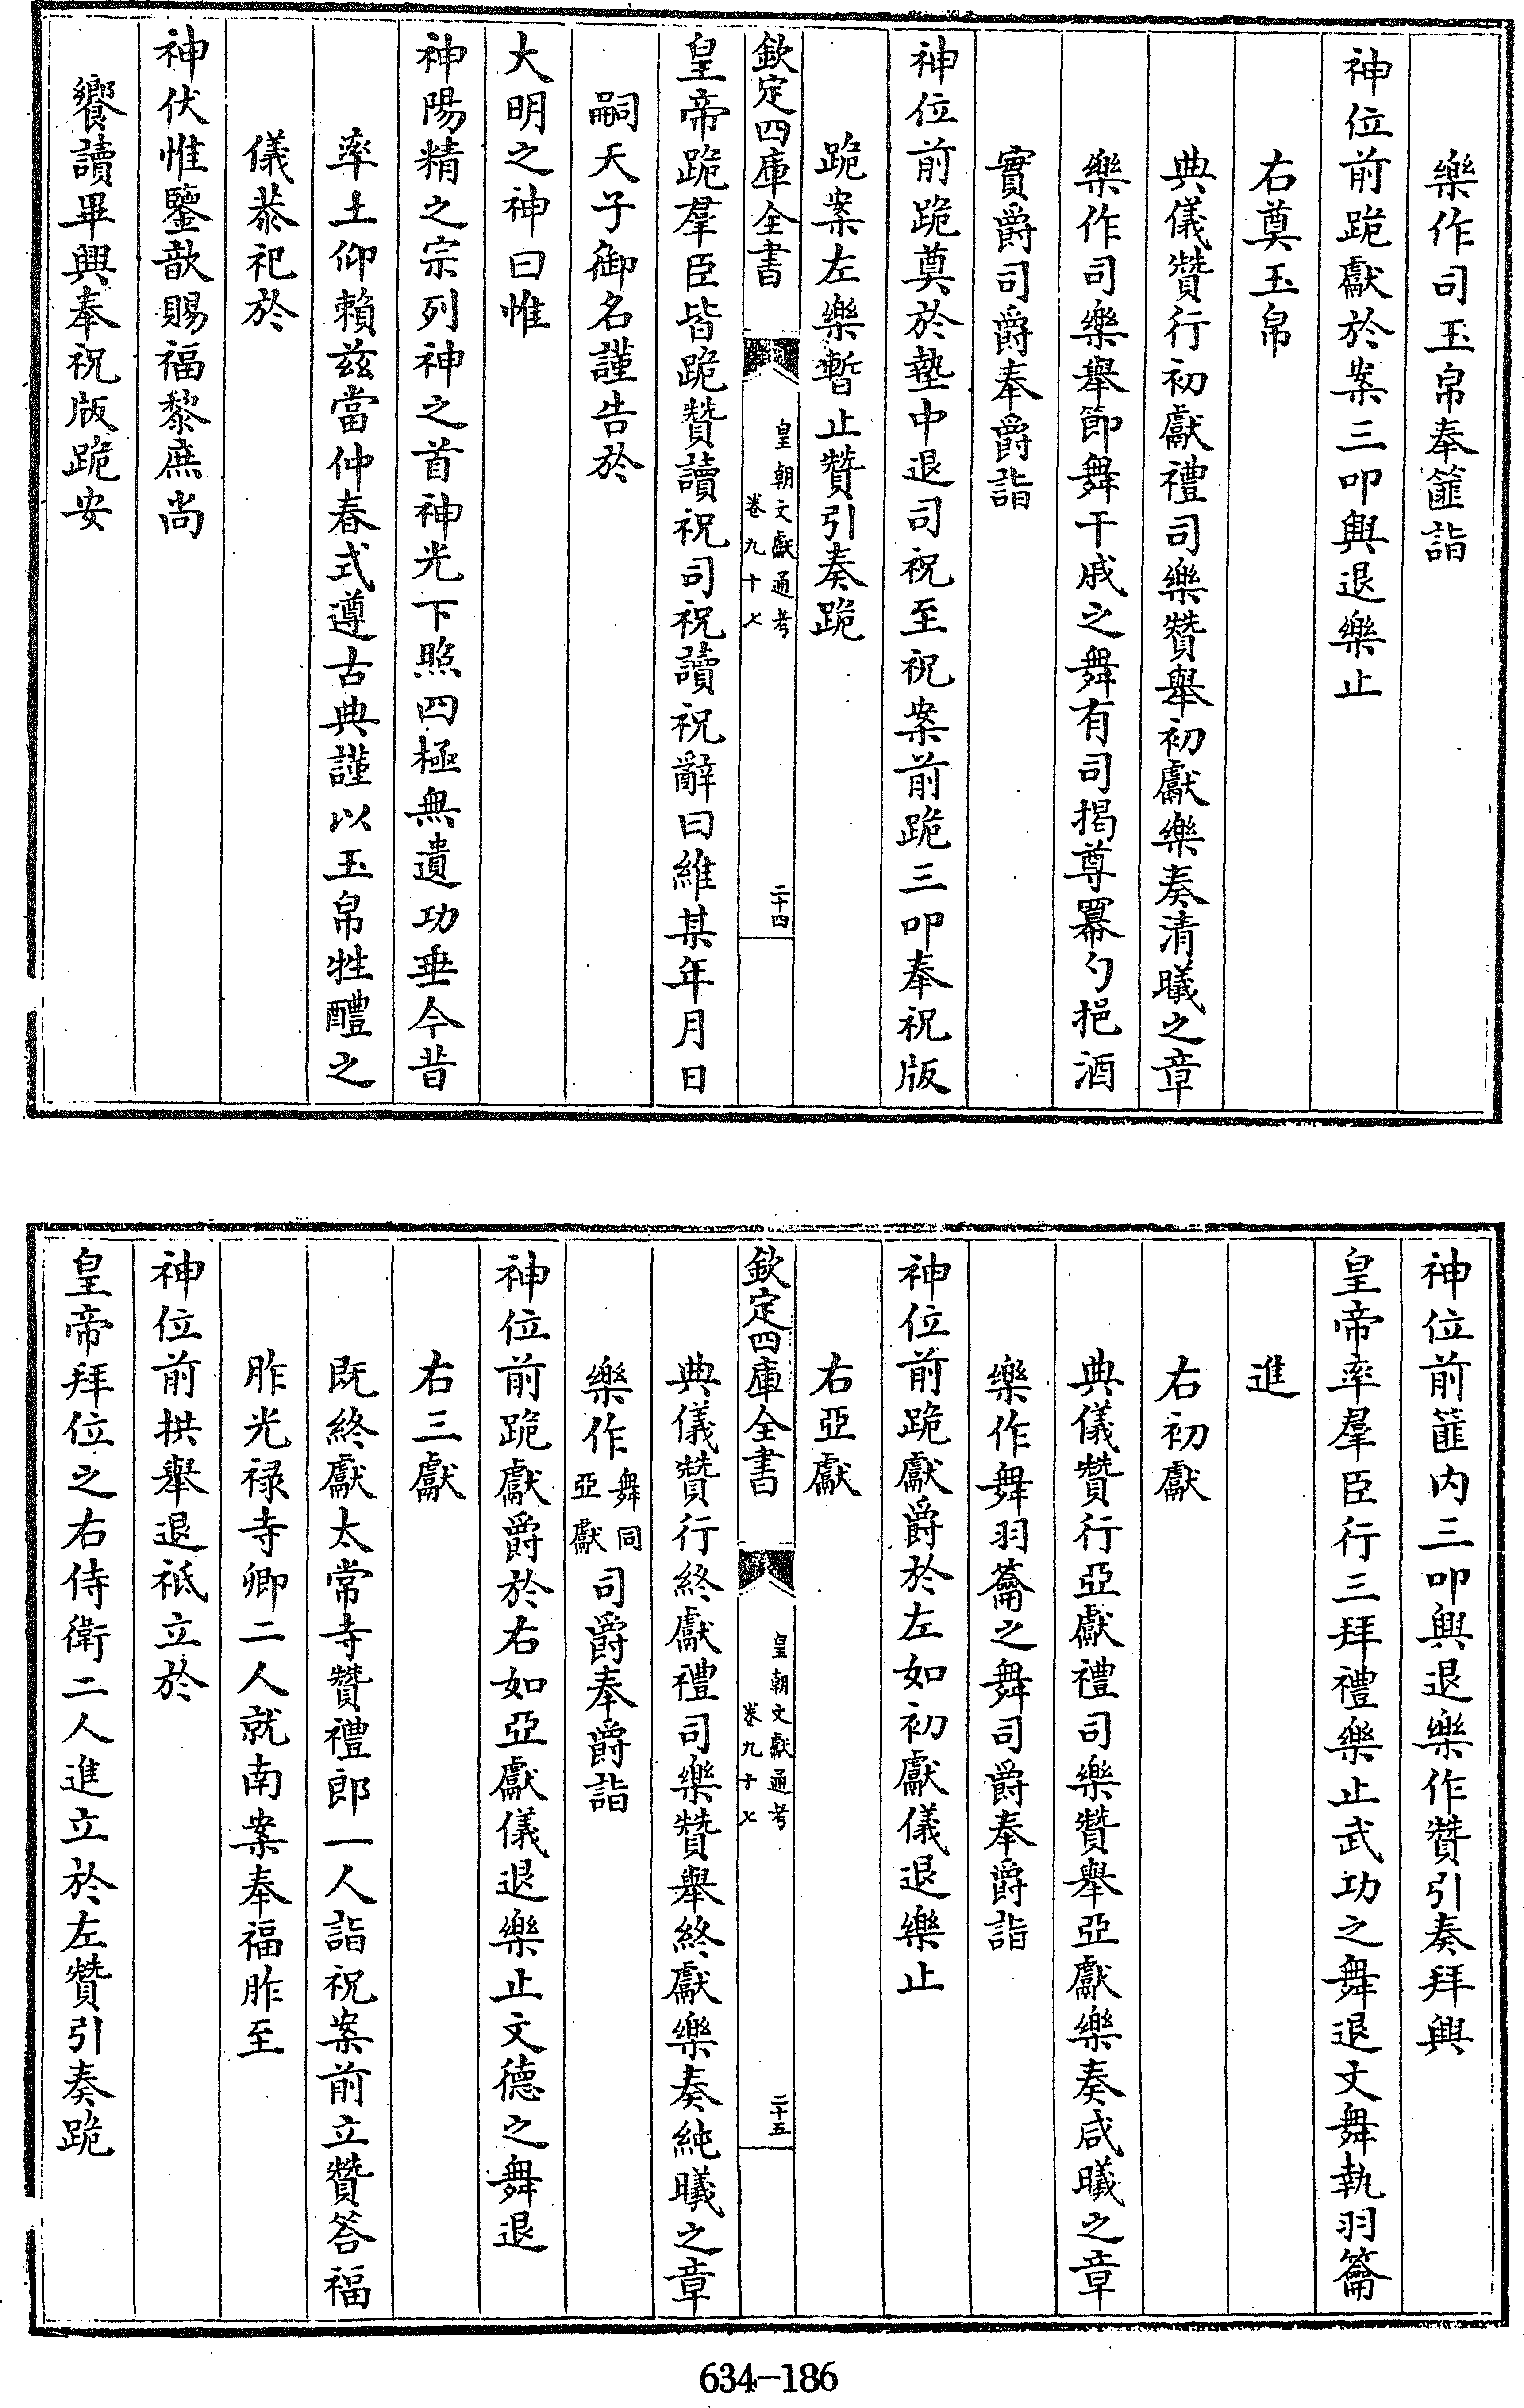 樂作司玉帛奉篚詣
神位前跪獻於案三叩興退樂止
右奠玉帛
典儀贊行初獻禮司樂贊舉初獻樂奏清曦之章
樂作司樂舉節舞干戚之舞有司揭尊冪勺挹酒
實爵司爵奉爵詣
神位前跪奠於墊中退司祝至祝案前跪三叩奉祝版
跪案左樂暫止贊引奏跪
欽定四庫全書
皇朝文獻通考
卷九十七
二十四
皇帝跪羣臣皆跪贊讀祝司祝讀祝辭曰維某年月日
嗣天子御名謹告於
大明之神曰惟
神陽精之宗列神之首神光下照四極無遺功垂今昔
率土仰賴茲當仲春式遵古典謹以玉帛牲醴之
儀恭祀於
神伏惟鑒歆賜福黎庶尚
饗讀畢興奉祝版跪安
神位前篚内三叩興退樂作贊引奏拜興
皇帝率羣臣行三拜禮樂止武功之舞退文舞執羽籥
進
右初獻
典儀贊行亞獻禮司樂贊舉亞獻樂奏咸曦之章
樂作舞羽籥之舞司爵奉爵詣
神位前跪獻爵於左如初獻儀退樂止
右亞獻
欽定四庫全書
皇朝文獻通考
卷九十七
二十五
典儀贊行終獻禮司樂贊舉終獻樂奏純曦之章
樂作舞同亞獻司爵奉爵詣
神位前跪獻爵於右如亞獻儀退樂止文德之舞退
右三獻
既終獻太常寺贊禮郎一人詣祝案前立贊答福
胙光祿寺卿二人就南案奉福胙至
神位前拱舉退祗立於
皇帝拜位之右侍衛二人進立於左贊引奏跪
634-186